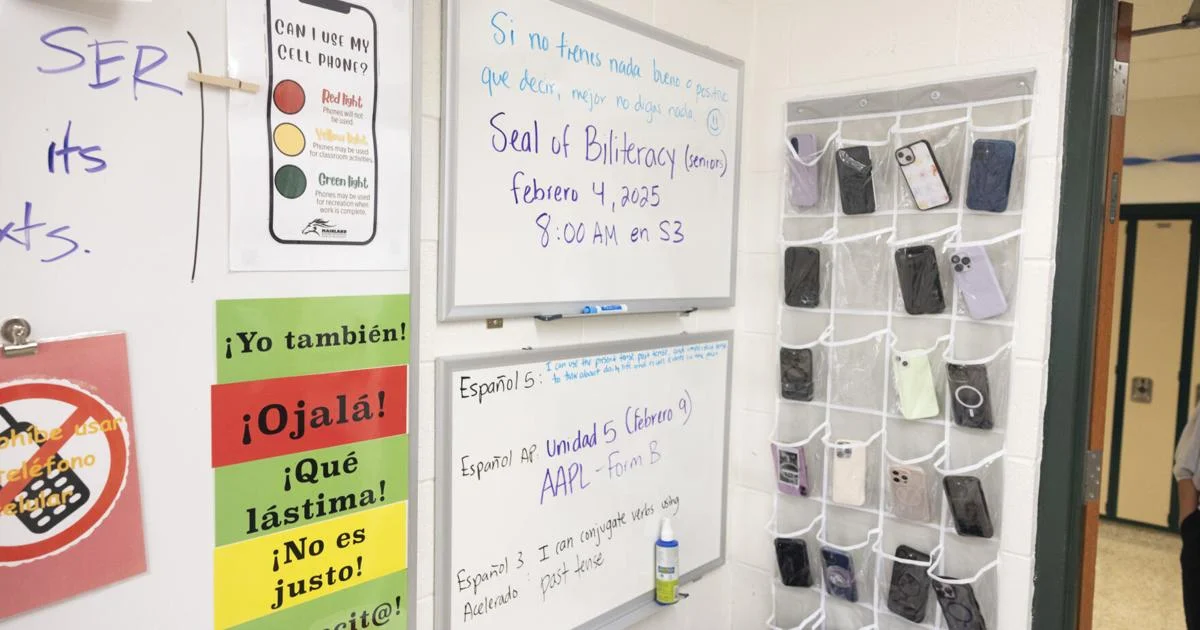 SER
its
xts.
CAN I USE MY
CELL PHONE?
Red light
Phones will not
be used.
Yellow light
Phones may be used
for classroom activities.
Green light
Phones may be used
for recreation when
work is complete.
ohíbe usar
teléfono
elular
¡Yo también!
¡Ojalá!
¡Qué
lástima!
¡No es
justo!
cit@!
Si no tienes nada bueno o positivo
que decir, mejor no digas nada.
Seal of Biliteracy (seniors)
febrero 4, 2025
8:00 AM en S3
Español 5: I can use the present tense past tense, and
to talk about daily life
Español AP: Unidad 5 (febrero 9)
AAPL - Form B
Español 3 I can conjugate verbs using
Acelerado: past tense